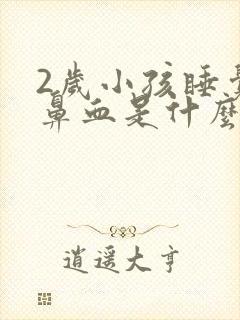 2歲小孩睡覺
鼻血是什麼
逍遥大亨